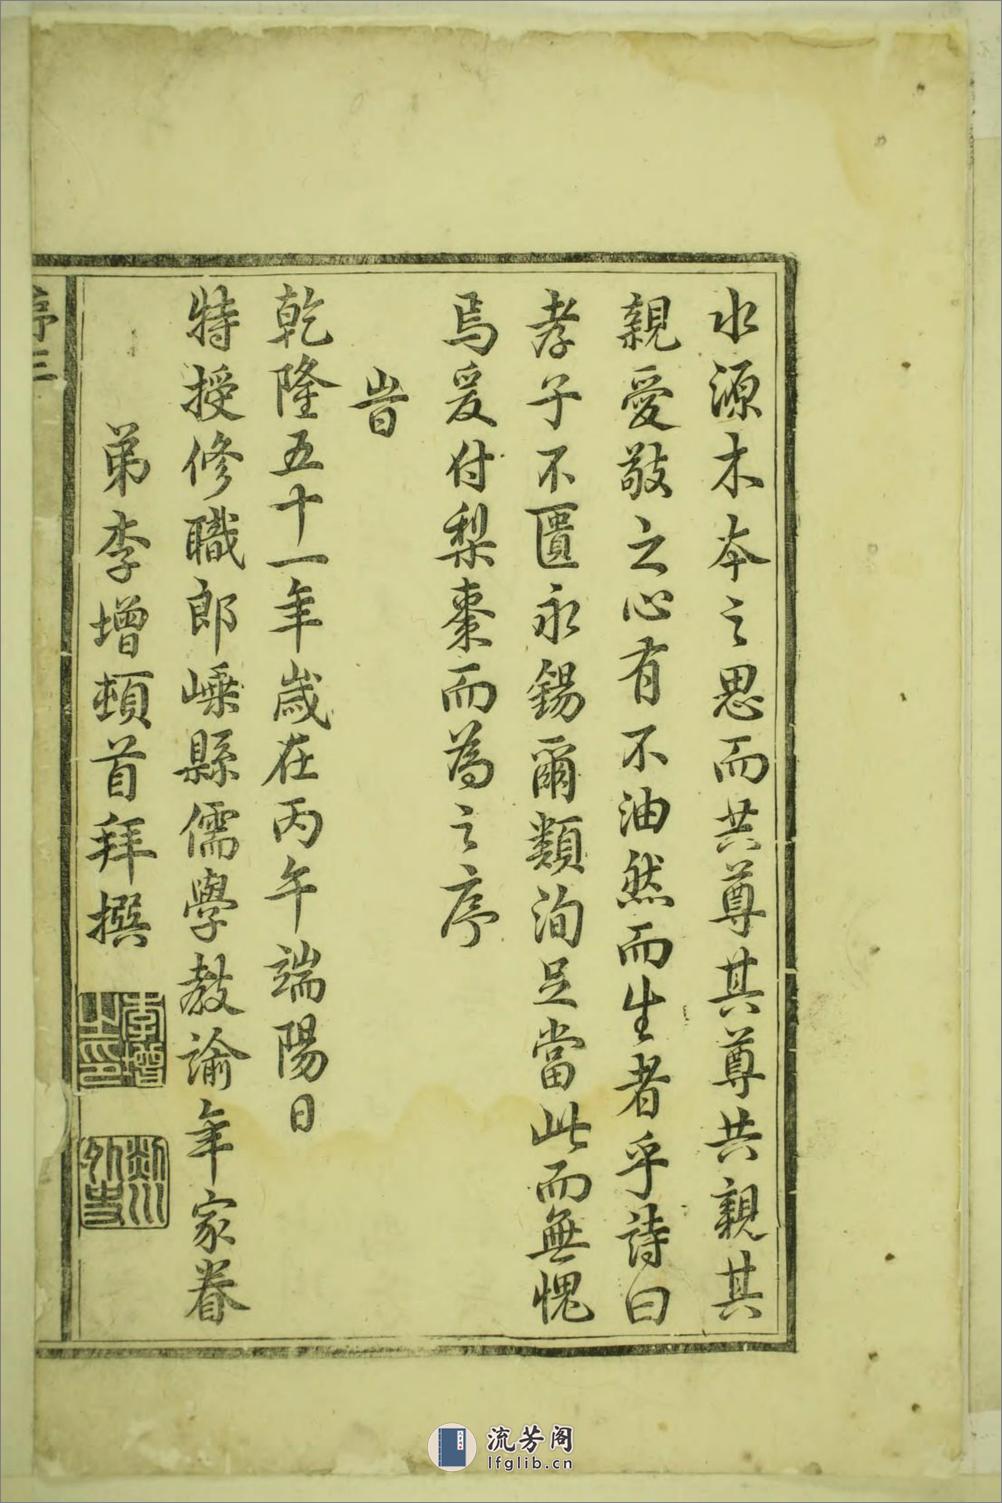 水源木本之思而共尊其尊共親其
親愛敬之心有不油然而生者乎詩曰
孝子不匱永錫爾類洵足當此而無愧
焉爰付梨棗而為之序
旹
乾隆五十一年歲在丙午端陽日
特授修職郎嵊縣儒學教諭年家眷
弟李增頓首拜撰
李增之印
序三
流芳阁
lfglib.cn